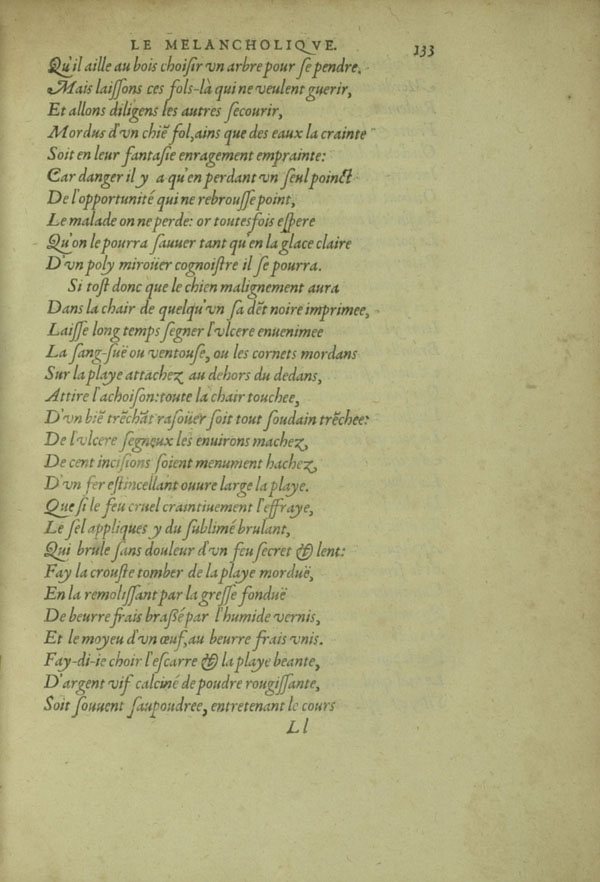 LE MELANCHOLIQVE. 133
Qu'il aille au bois choisir vn arbre pour se pendre.
Mais laissons ces fols-là qui ne veulent guerir,
Et allons diligens les autres secourir,
Mordus d'vn chiẽ fol, ains que des eaux la crainte
Soit en leur fantasie enragement emprainte:
Car danger il y a qu'en perdant vn seul poinct
De l'opportunité qui ne rebrousse point,
Le malade on ne perde: or toutesfois espere
Qu'on le pourra sauuer tant qu'en la glace claire
D'vn poly miroüer cognoistre il se pourra.
Si tost donc que le chien malignement aura
Dans la chair de quelqu'vn sa dẽt noire imprimee,
Laisse long temps segner l'vlcere enuenimee
La sang-suë ou ventouse, ou les cornets mordans
Sur la playe attachez au dehors du dedans,
Attire l'achoison: toute la chair touchee,
D'vn biẽ trẽchãt rasoüer soit tout soudain trẽchee:
De l'vlcere segneux les enuirons machez,
De cent incisions soient menument hachez,
D'vn fer estincellant ouure large la playe.
Que si le feu cruel craintiuement l'effraye,
Le sel appliques y du sublimé brulant,
Qui brule sans douleur d'vn feu secret & lent:
Fay la crouste tomber de la playe morduë,
En la remolissant par la gresse fonduë
De beurre frais brassé par l'humide vernis,
Et le moyeu d'vn œuf, au beurre frais vnis.
Fay-di-ie choir l'escarre & la playe beante,
D'argent vif calciné de poudre rougissante,
Soit souuent saupoudree, entretenant le cours
Ll